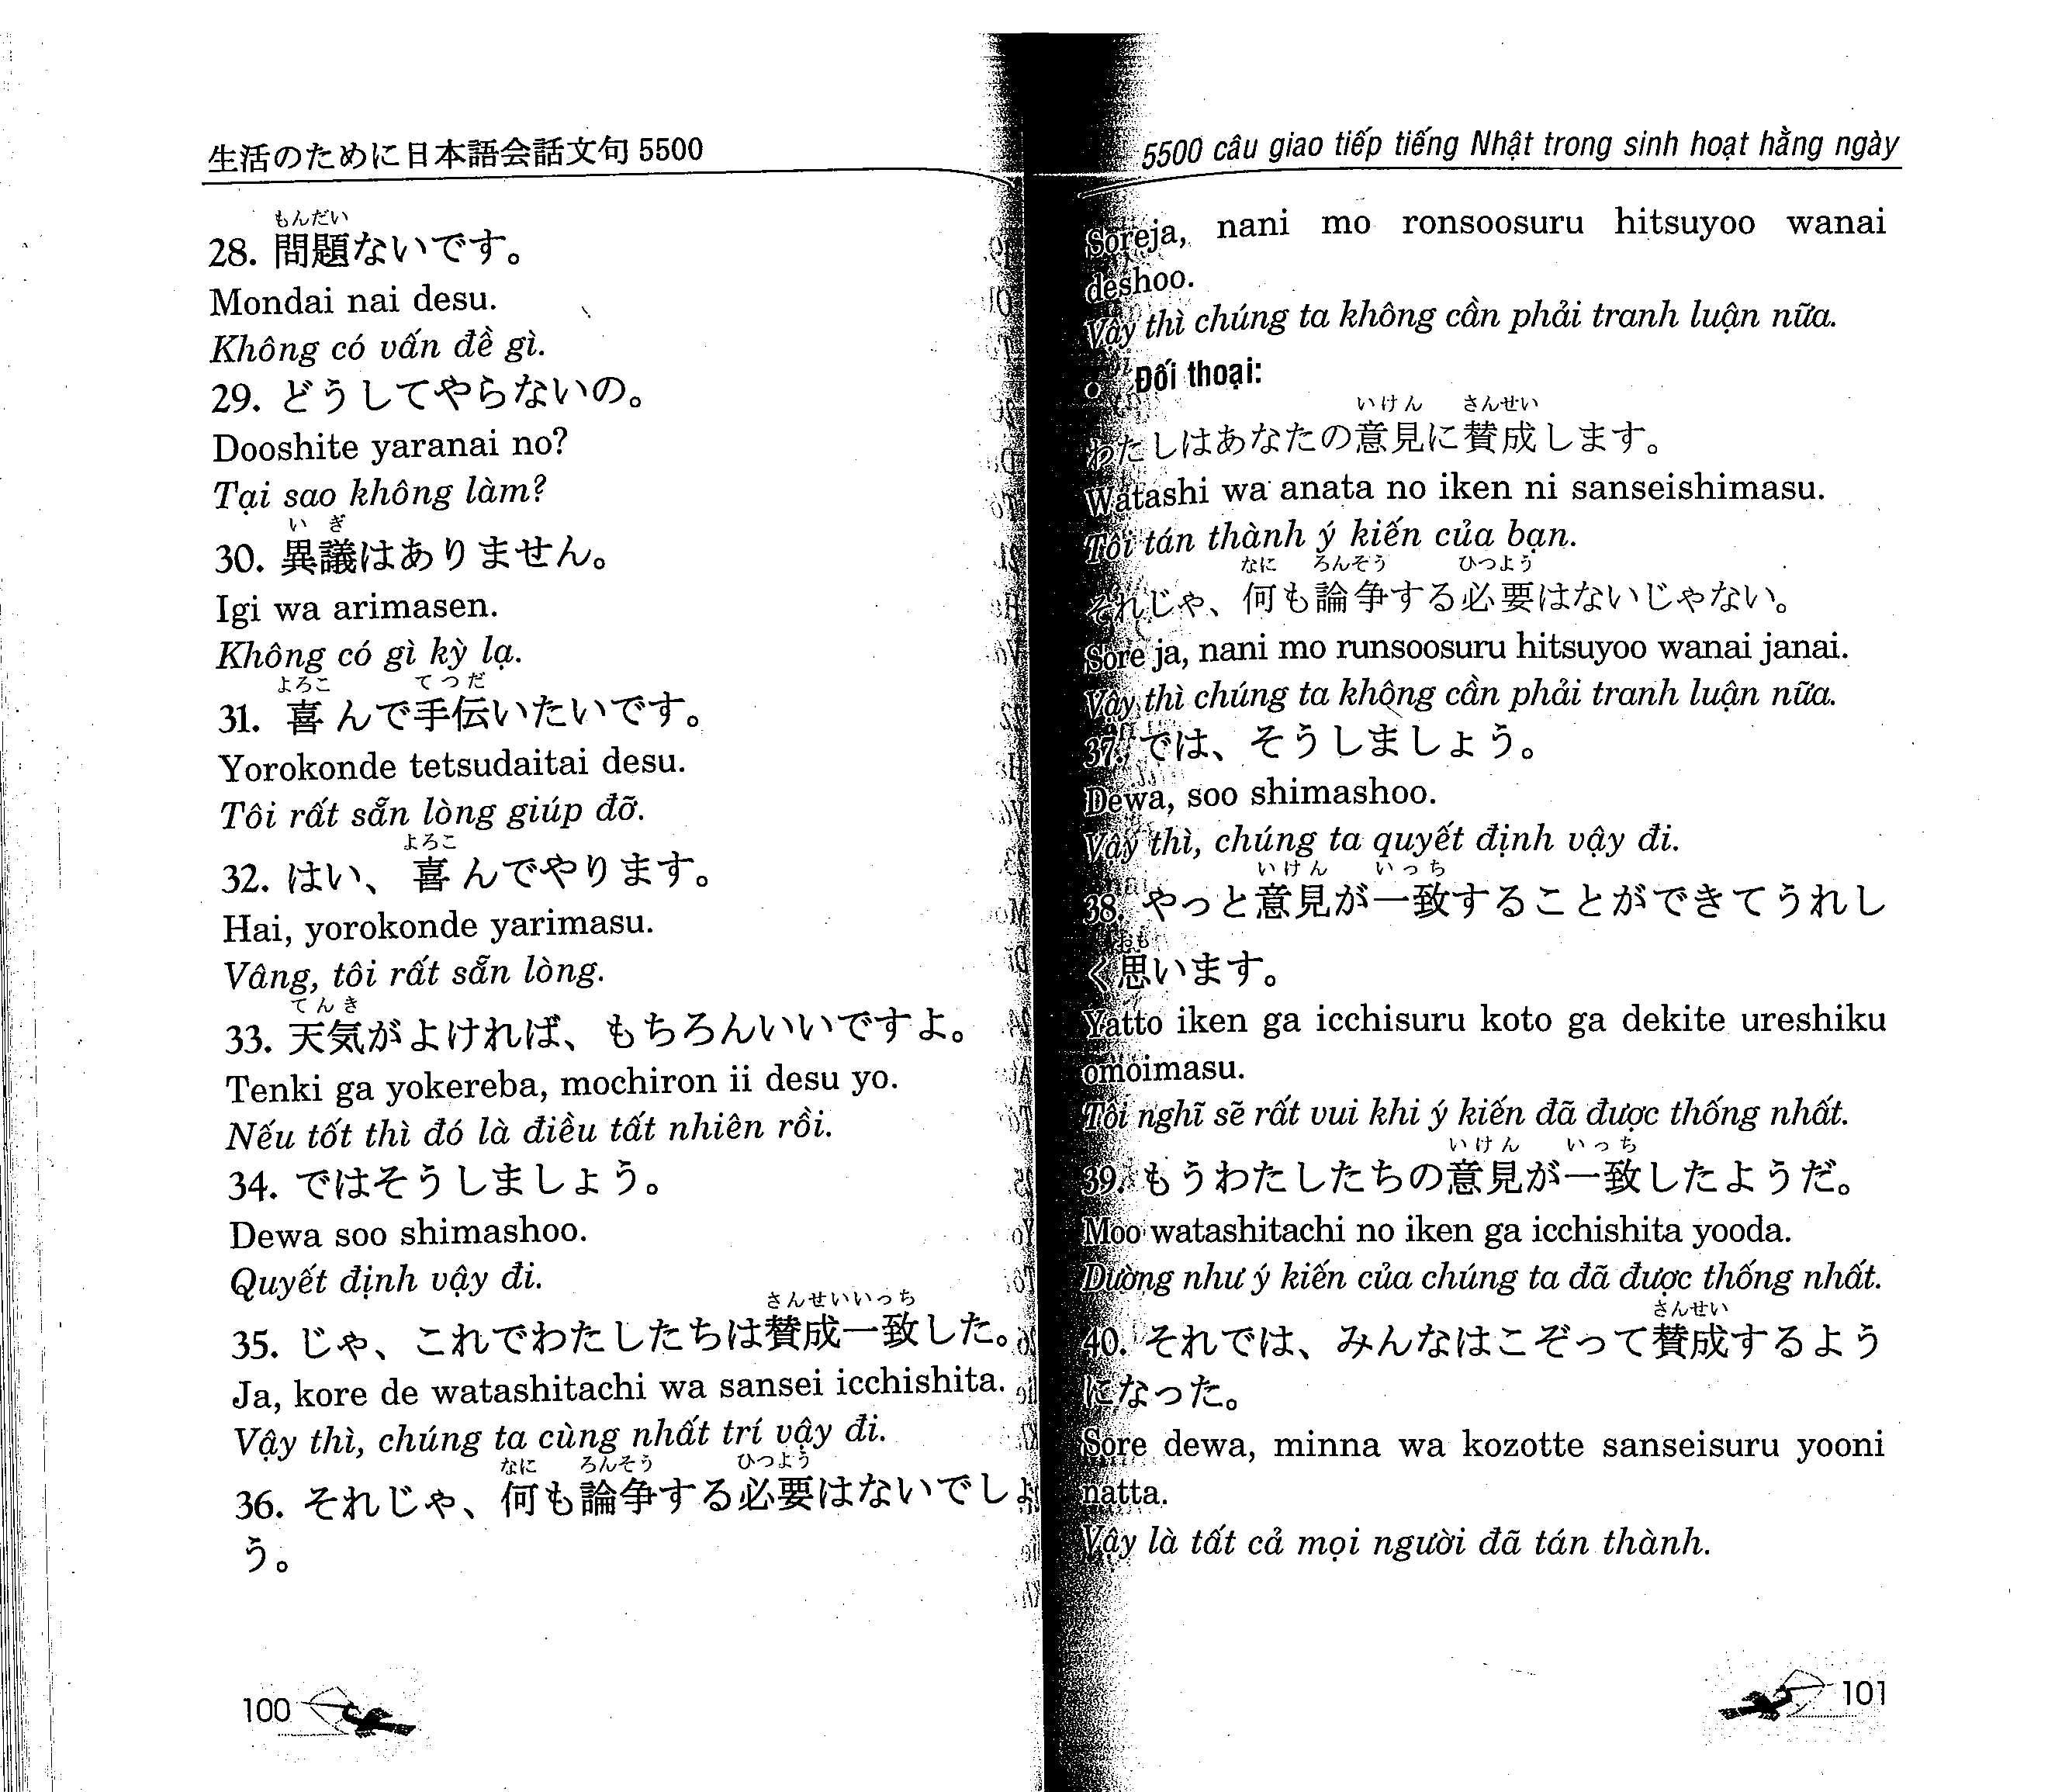 生活のために日本語会話文句 5500
もんだい
28. 問題ないです。
Mondai nai desu.
Không có vấn đề gì.
29. どうしてやらないの。
Dooshite yaranai no?
Tại sao không làm?
い ぎ
30. 異議はありません。
Igi wa arimasen.
Không có gì kỳ lạ.
よろこ てつだ
31. 喜んで手伝いたいです。
Yorokonde tetsudaitai desu.
Tôi rất sẵn lòng giúp đỡ.
よろこ
32. はい、喜んでやります。
Hai, yorokonde yarimasu.
Vâng, tôi rất sẵn lòng.
てんき
33. 天気がよければ、もちろんいいですよ。
Tenki ga yokereba, mochiron ii desu yo.
Nếu tốt thì đó là điều tất nhiên rồi.
34. ではそうしましょう。
Dewa soo shimashoo.
Quyết định vậy đi.
さんせいいっち
35. じゃ、これでわたしたちは賛成一致した。
Ja, kore de watashitachi wa sansei icchishita.
Vậy thì, chúng ta cùng nhất trí vậy đi.
なに ろんそう ひつよう
36. それじゃ、何も論争する必要はないでしょ
う。
100
5500 câu giao tiếp tiếng Nhật trong sinh hoạt hằng ngày
Soreja, nani mo ronsoosuru hitsuyoo wanai
deshoo.
Vậy thì chúng ta không cần phải tranh luận nữa.
Đối thoại:
いけん さんせい
わたしはあなたの意見に賛成します。
Watashi wa anata no iken ni sanseishimasu.
Tôi tán thành ý kiến của bạn.
なに ろんぞう ひつよう
それじゃ、何も論争する必要はないじゃない。
Sore ja, nani mo runsoosuru hitsuyoo wanai janai.
Vậy thì chúng ta không cần phải tranh luận nữa.
37. では、そうしましょう。
Dewa, soo shimashoo.
Vậy thì, chúng ta quyết định vậy đi.
いけん いっち
38. やっと意見が一致することができてうれし
おも
く思います。
Yatto iken ga icchisuru koto ga dekite ureshiku
omoimasu.
Tôi nghĩ sẽ rất vui khi ý kiến đã được thống nhất.
いけん いっち
39. もうわたしたちの意見が一致したようだ。
Moo watashitachi no iken ga icchishita yooda.
Dường như ý kiến của chúng ta đã được thống nhất.
さんせい
40. それでは、みんなはこぞって賛成するよう
になった。
Sore dewa, minna wa kozotte sanseisuru yooni
natta.
Vậy là tất cả mọi người đã tán thành.
101